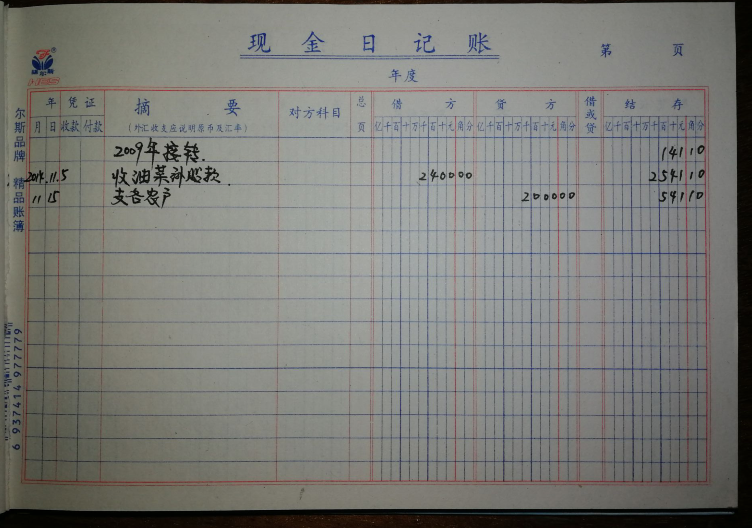 现金日记账
第 页
年度
年 凭证 摘要 对方科目 总页 借方 贷方 借或贷 结存
月 日 收款 付款 (外汇收支应说明原币及汇率) 亿千百十万千百十元角分 亿千百十万千百十元角分 亿千百十万千百十元角分
2009年接转. 14110
11.5 收油菜补贴款. 240000 254110
11 15 支各农户 200000 54110
尔斯品牌 精品账簿
6 937414 977779